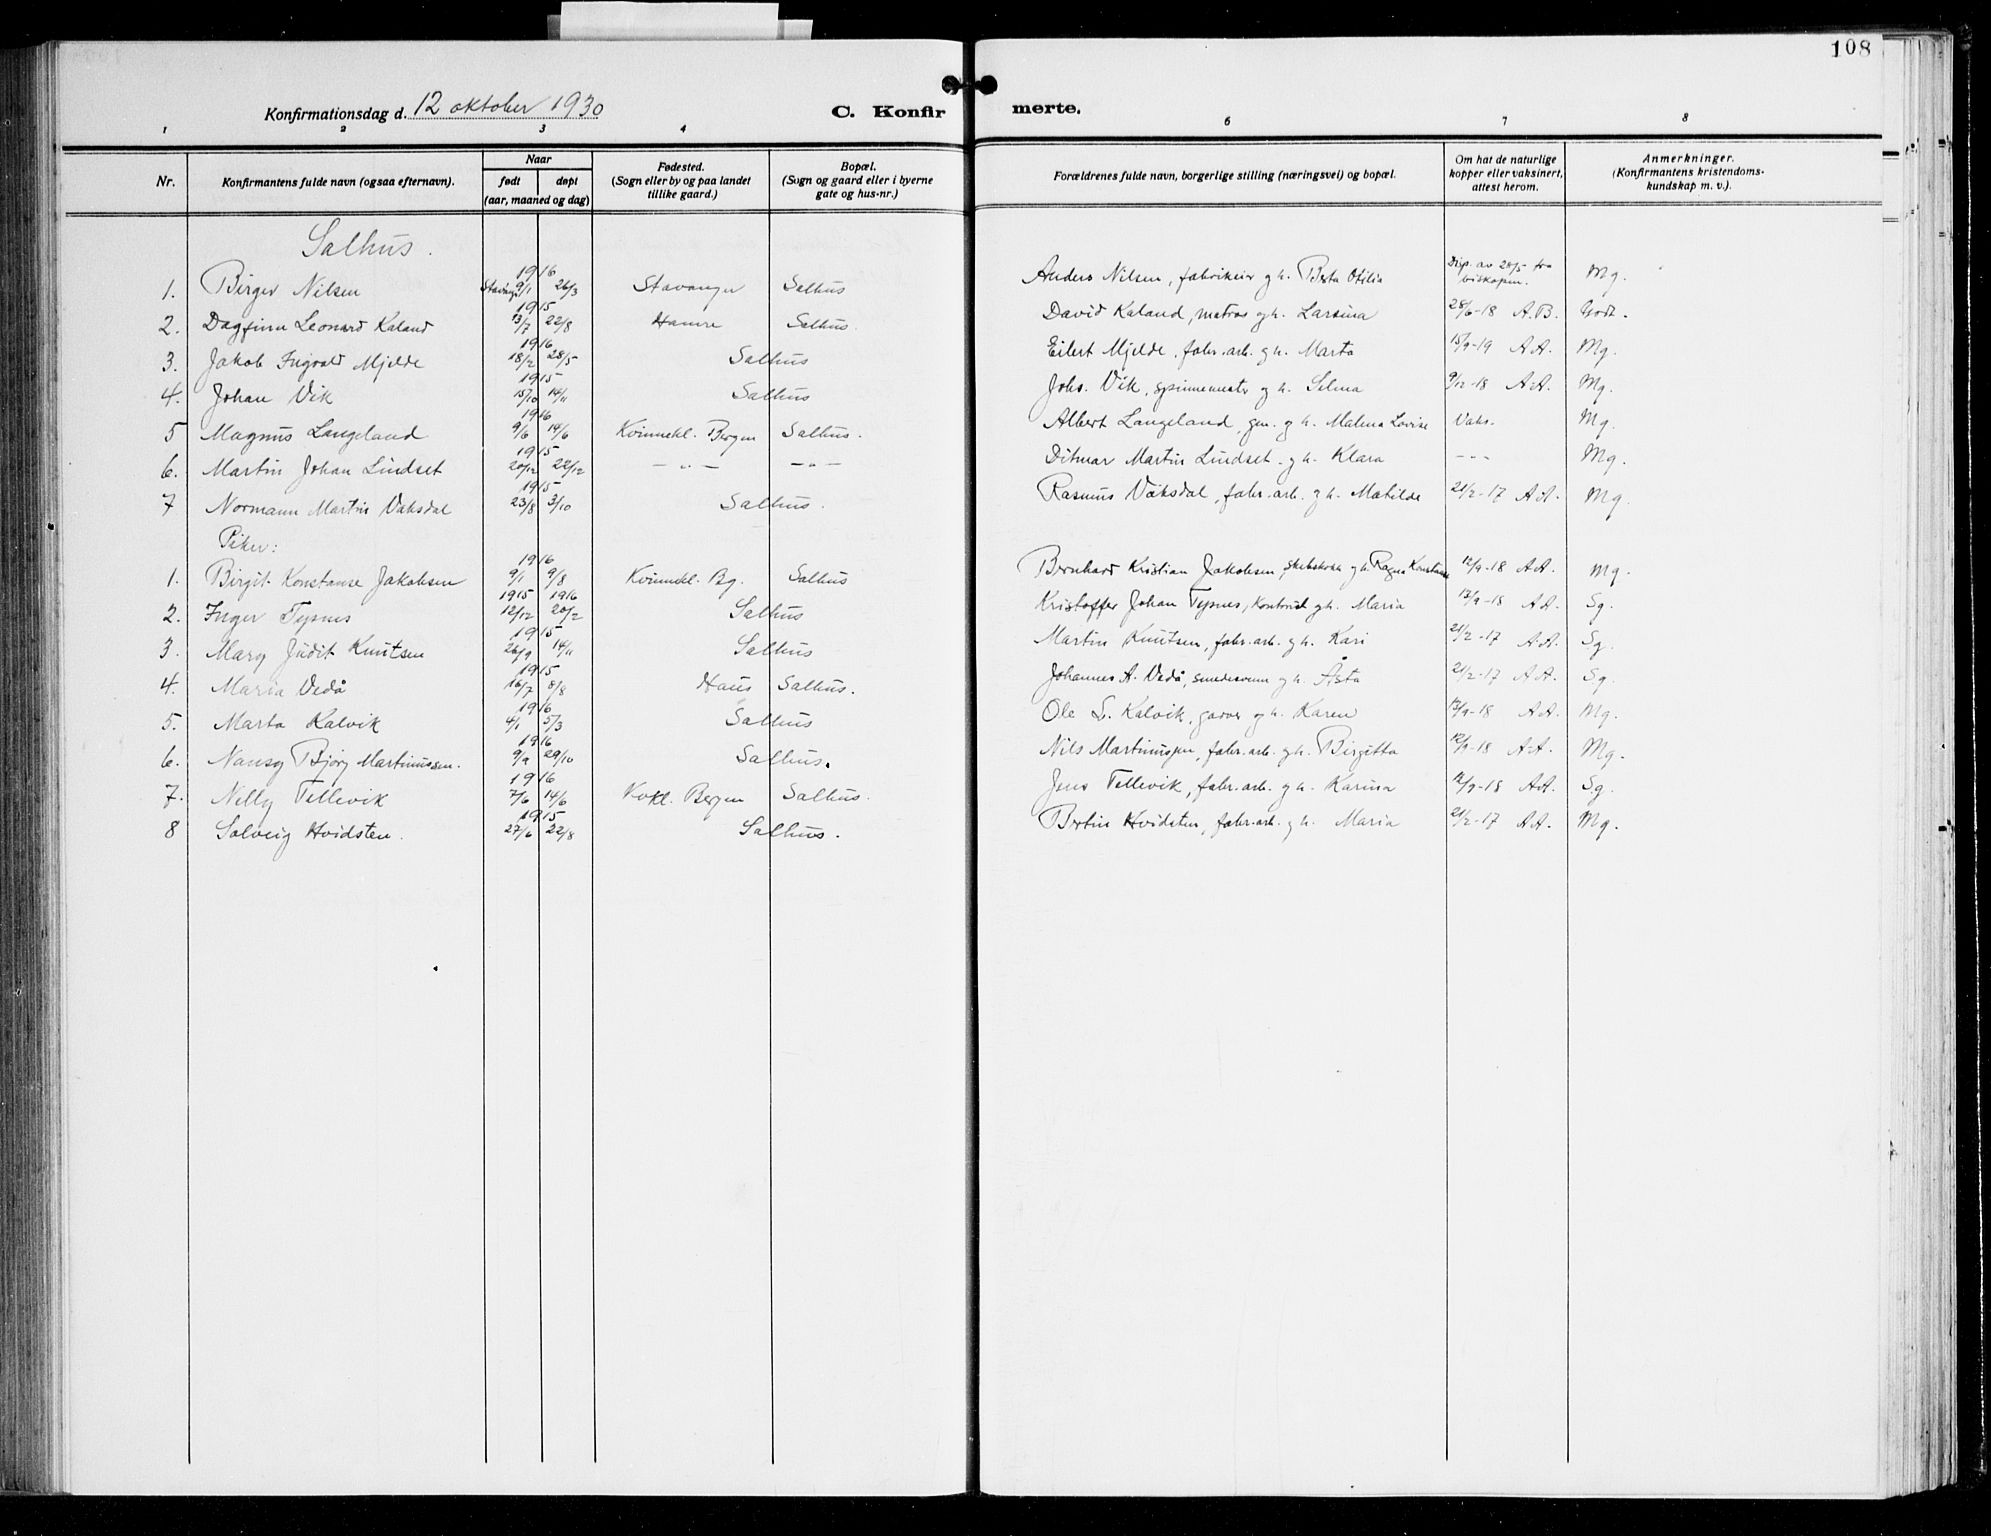 108
Konfirmationsdag d. 12 oktober 1930
C. Konfirmerte.
1 2 3 4 6 7 8
Nr. Konfirmantens fulde navn (ogsaa efternavn). Naar født døpt (aar, maaned og dag) Fødested. (Sogn eller by og paa landet tillike gaard.) Bopæl. (Sogn og gaard eller i byerne gate og hus-nr.) Forældrenes fulde navn, borgerlige stilling (næringsvei) og bopæl. Om hat de naturlige kopper eller vaksinert, attest herom. Anmerkninger. (Konfirmantens kristendomskundskap m. v.).
Salhus.
1. Birger Nilsen 1916 9/1 26/3 Stavanger Salhus Anders Nilsen, fabrikeier g h. Otilia Disp. av 20/5 fra biskopen. Mg.
2. Dagfinn Leonard Kaland 1915 13/7 22/8 Hamre Salhus. David Kaland, matros g h. Larsina 28/6-18 A.B. Godt.
3. Jakob Ingvald Mjelde 1916 18/2 28/5 Salhus Eilert Mjelde, fabr. arb. g h. Marta 15/9-19 A A. Mg.
4. Johan Vik 1915 15/10 14/11 Salhus Johs. Vik, spinnemester g h. Selma 9/12-18 A.A. Mg.
5 Magnus Langeland 1916 9/6 14/6 Kvinnekl. Bergen Salhus. Albert Langeland, g h. Malena Lovise Vaks. Mg.
6. Martin Johan Lindset 1915 20/12 22/12 — " — — " — Ditmar Martin Lindset g h. Klara — " — Mg.
7 Normann Martin Vaksdal 1915 23/8 3/10 Salhus. Rasmus Vaksdal, fabr. arb. g h. Matilde 21/2-17 A A. Mg.
Piker:
1. Birgit Konstanse Jakobsen 1916 9/1 9/8 Kvinnekl. Bg. Salhus Bernhard Kristian Jakobsen, g h. Ragna Konstanse 12/9-18 A A. Mg.
2. Inger Tysnes 1915 1916 12/12 20/2 Salhus Kristoffer Johan Tysnes, g h. Maria 12/9-18 A A. Sg.
3. Mary Judit Knutsen 1915 26/9 14/11 Salhus Martin Knutsen, fabr. arb. g h. Kari 21/2-17 A.A. Sg.
4. Maria Vedå 1915 16/7 8/8 Haus Salhus. Johannes A. Vedå, smedesvenn g h. Åsta 21/2-17 A A. Sg.
5. Marta Kalvik 1916 4/1 5/3 Salhus Ole L. Kalvik, garver g h. Karen 12/9-18 A A. Mg.
6. Nansy Bjørg Martinussen. 1916 9/9 29/10 Salhus. Nils Martinussen, fabr. arb. g h. Birgitta 12/9-18 A.A. Mg.
7. Nelly Tellevik 1916 7/6 14/6 Kvkl. Bergen Salhus. Jens Tellevik, fabr. arb. g h. Karina 12/9-18 A.A. S.g.
8 Solveig Hvidsten. 1915 27/6 22/8 Salhus. Bertin Hvidsten, fabr. arb. g h. Maria 21/2-17 A A. Mg.